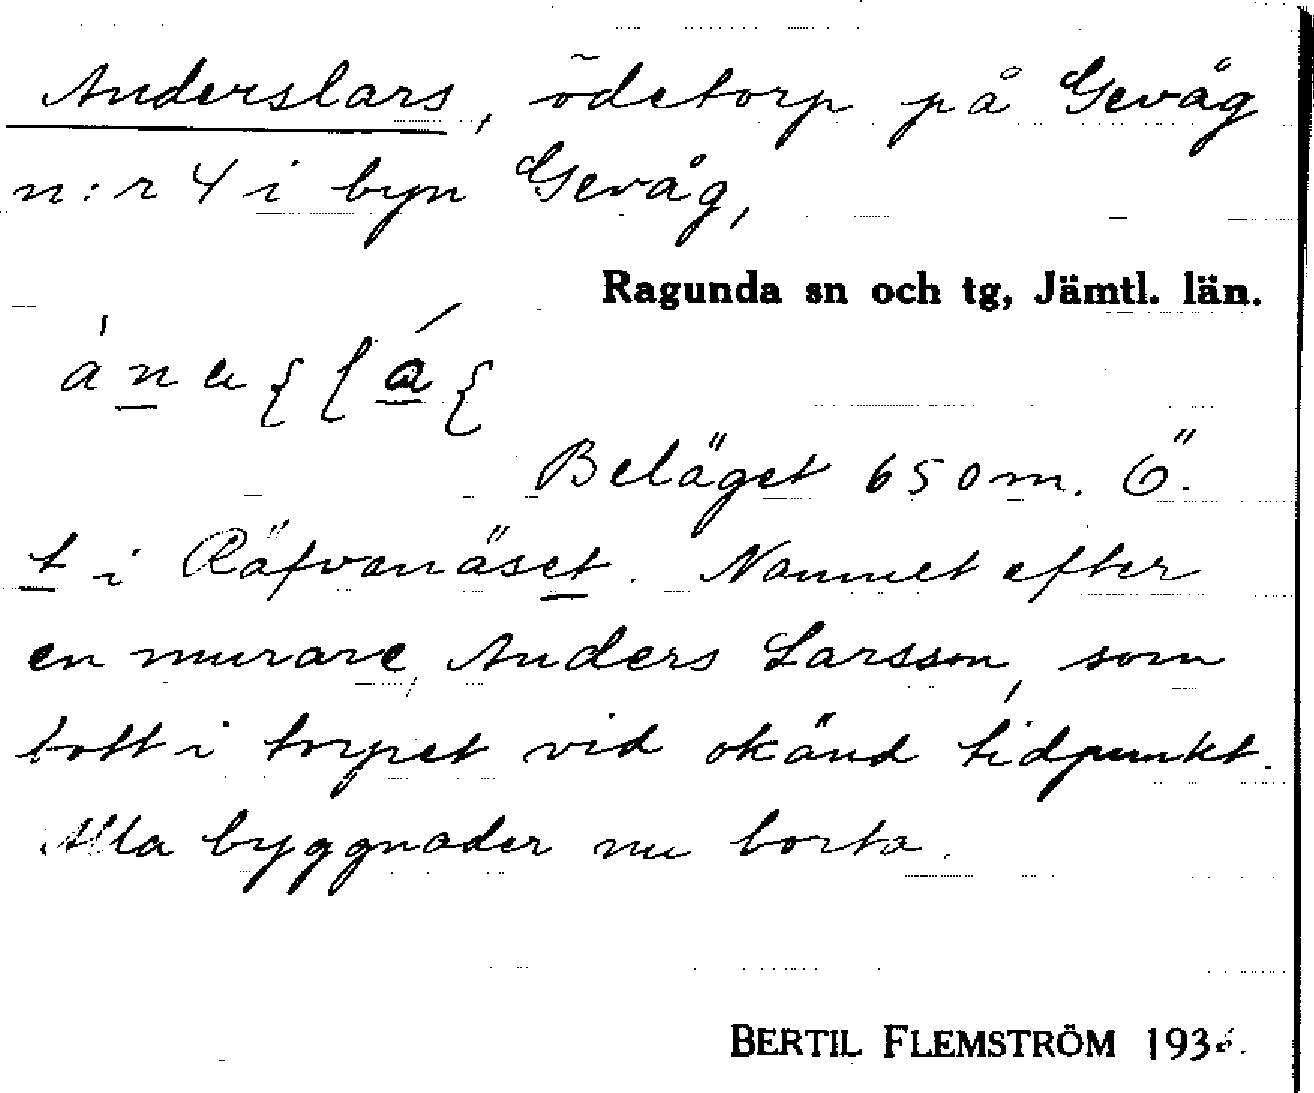 Anderslars, ödetorp på Gevåg
n:r 4 i byn Gevåg,
Ragunda sn och tg, Jämtl. län.
Beläget 650 m. Ö.
t i Räfvanäset. Namnet efter
en murare, Anders Larsson, som
bott i torpet vid okänd tidpunkt.
Alla byggnader nu borta.
BERTIL FLEMSTRÖM 1936.